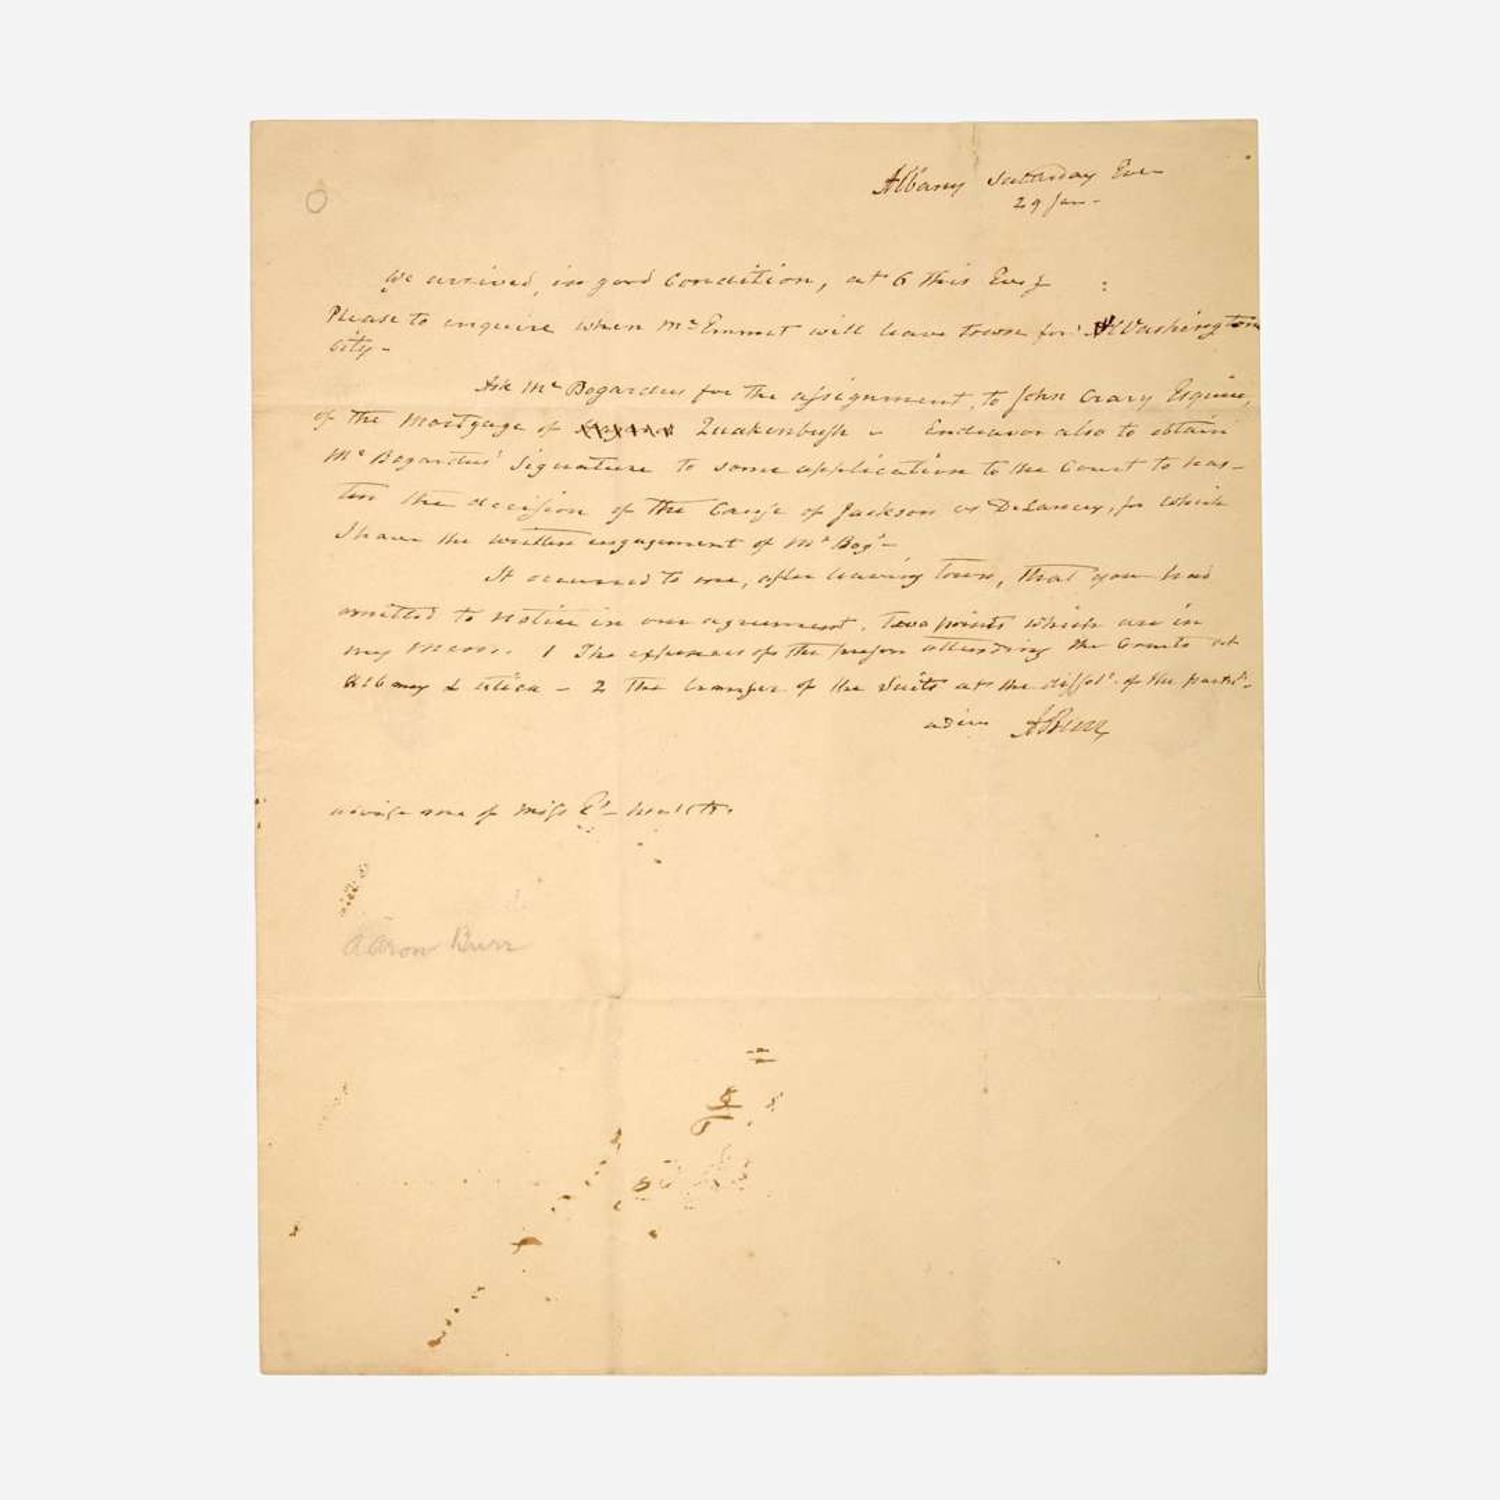 Albany Saturday Eve
29 Jan -
We arrived, in good Condition, at 6 this Eveg
Please to enquire when Mr Emmet will leave town for Washington
City -
Ask Mr Bogardus for the assignment, to John Crary Esquire,
of the Mortgage of Quakenbush - Endeavor also to obtain
Mr Bogardus' signature to some application to the Court to has-
ten the decision of the Cause of Jackson vs DeLancey, for which
I have the written engagement of Mr Bogs -
It occurred to me, after leaving town, that you had
omitted to notice in our agreement, two points which are in
my Mem. 1 The expenses of the person attending the Courts at
Albany & Utica - 2 The transfer of the Suits at the dissoln. of the partnp.
adieu A Burr
advise me of Miss health.
Aaron Burr